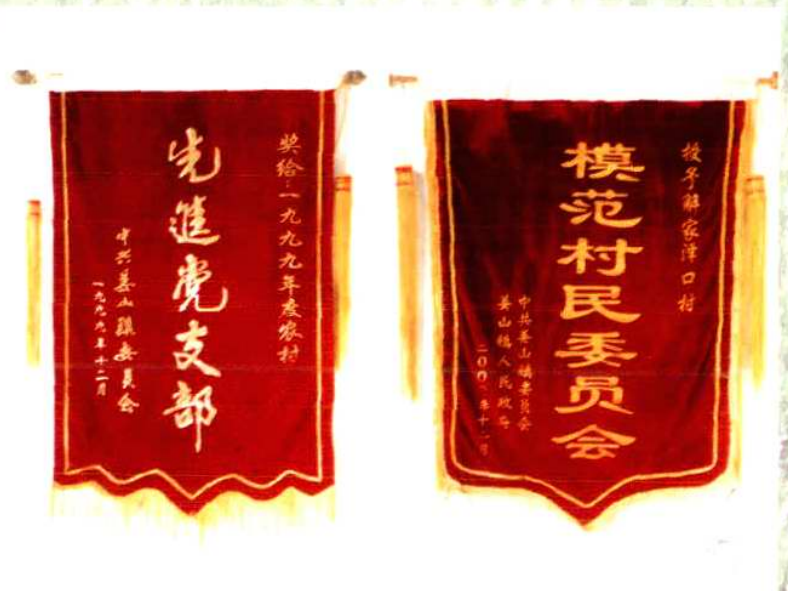 奖给:一九九九年度农村
先進党支部
中共姜山镇委员会
一九九九年十二月
授予解家泽口村
模范村民委员会
中共姜山镇委员会
姜山镇人民政府